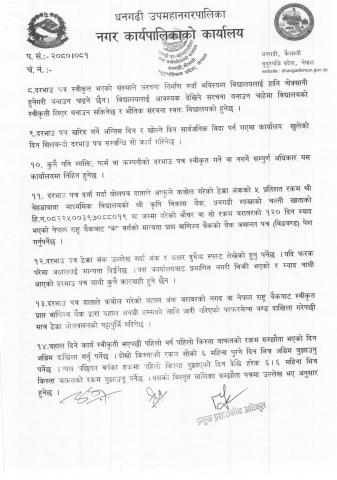 धनगढी उपमहानगरपालिका
नगर कार्यपालिकाको कार्यालय
धनगढी, कैलाली
सुदूरपश्चिम प्रदेश, नेपाल
website : dhangadhimun.gov.np
प. सं.:- २०८०/०८१
च. नं. :-
८.दरभाउ पत्र स्वीकृत भएको संस्थाले संरचना निर्माण गर्दा भविस्यमा विद्यालयलाई हानि नोक्सानी
हुनेगरी बनाउन पाइने छैन । विद्यालयलाई आवश्यक देखिने संरचना बनाउन चाहेमा विद्यालयको
स्वीकृती लिएर बनाउन सकिनेछ र भौतिक संरचना स्वतः विद्यालयको हुनेछ ।
९.दरभाउ पत्र खरिद गर्ने अन्तिम दिन र खोल्ने दिन सार्वजनिक बिदा पर्न गएमा कार्यालय खुलेको
दिन सिलवन्दी दरभाउ पत्र सम्बन्धि सो कार्य गरिनेछ ।
१०. कुनै पनि व्यक्ति, फर्म वा कम्पनीको दरभाउ पत्र स्वीकृत गर्ने वा नगर्ने सम्पुर्ण अधिकार यस
कार्यालयमा निहित हुनेछ ।
११. दरभाउ पत्र दर्ता गर्दा बोलपत्र दाताले आफुले कबोल गरेको ठेक्का अंकको ५ प्रतिशत रकम श्री
बेहडाबाबा माध्यमिक विद्यालयको श्री कृषि विकास बैंक, धनगढी शाखाको चल्ती खाताको
हि.नं. मा जम्मा गरेको भौचर वा सो रकम बराबरको १२० दिन म्याद
भएको नेपाल राष्ट्र बैंकबाट "क" वर्गको मान्यता प्राप्त बाणिज्य बैंकको बैंक जमानत पत्र (बिडबण्ड) पेश
गर्नुपर्नेछ ।
१२.दरभाउ पत्र ठेक्का अंक उल्लेख गर्दा अंक र अक्षर दुबैमा स्पस्ट लेखेको हुनु पर्नेछ । यदि फरक
परेमा अक्षरलाई मान्यता दिईनेछ । यस कार्यालयबाट प्रमाणित नगरी बिक्री भएको र म्याद नाघी
आएको दरभाउ पत्र माथी कुनै कारवाही हुने छैन ।
१३.दरभाउ पत्र दाताले कबोल गरेको बहाल अंक बराबरको नगद वा नेपाल राष्ट्र बैंकबाट स्वीकृत
प्राप्त बाणिज्य बैंक द्वारा बहाल अवधी सम्मको लागि जारी गरिएको परफरमेन्स बण्ड दाखिला गरेपछी
मात्र ठेक्का बन्दोबस्तको पट्टापुर्जि गरिनेछ ।
१४.बहाल दिने कार्य स्वीकृती भएपछी पहिलो बर्ष पहिलो किस्ता वाफतको रकम सम्झौता भएको दिन
अग्रिम दाखिला गर्नु पर्नेछ । दोस्रो किस्ताको रकम सोको ६ महिना पुग्ने दिन भित्र अग्रिम बुझाउनु
पर्नेछ । त्यस पछिका बर्षका हकमा पहिलो किस्ता बुझाएको दिन देखि हरेक ६/६ महिना भित्र
किस्ता वाफतको रकम बुझाउनु पर्नेछ । यसको विस्तृत तालिका सम्झौता पत्रमा उल्लेख भए अनुसार
हुनेछ ।
प्रमुख प्रशासकीय अधिकृत